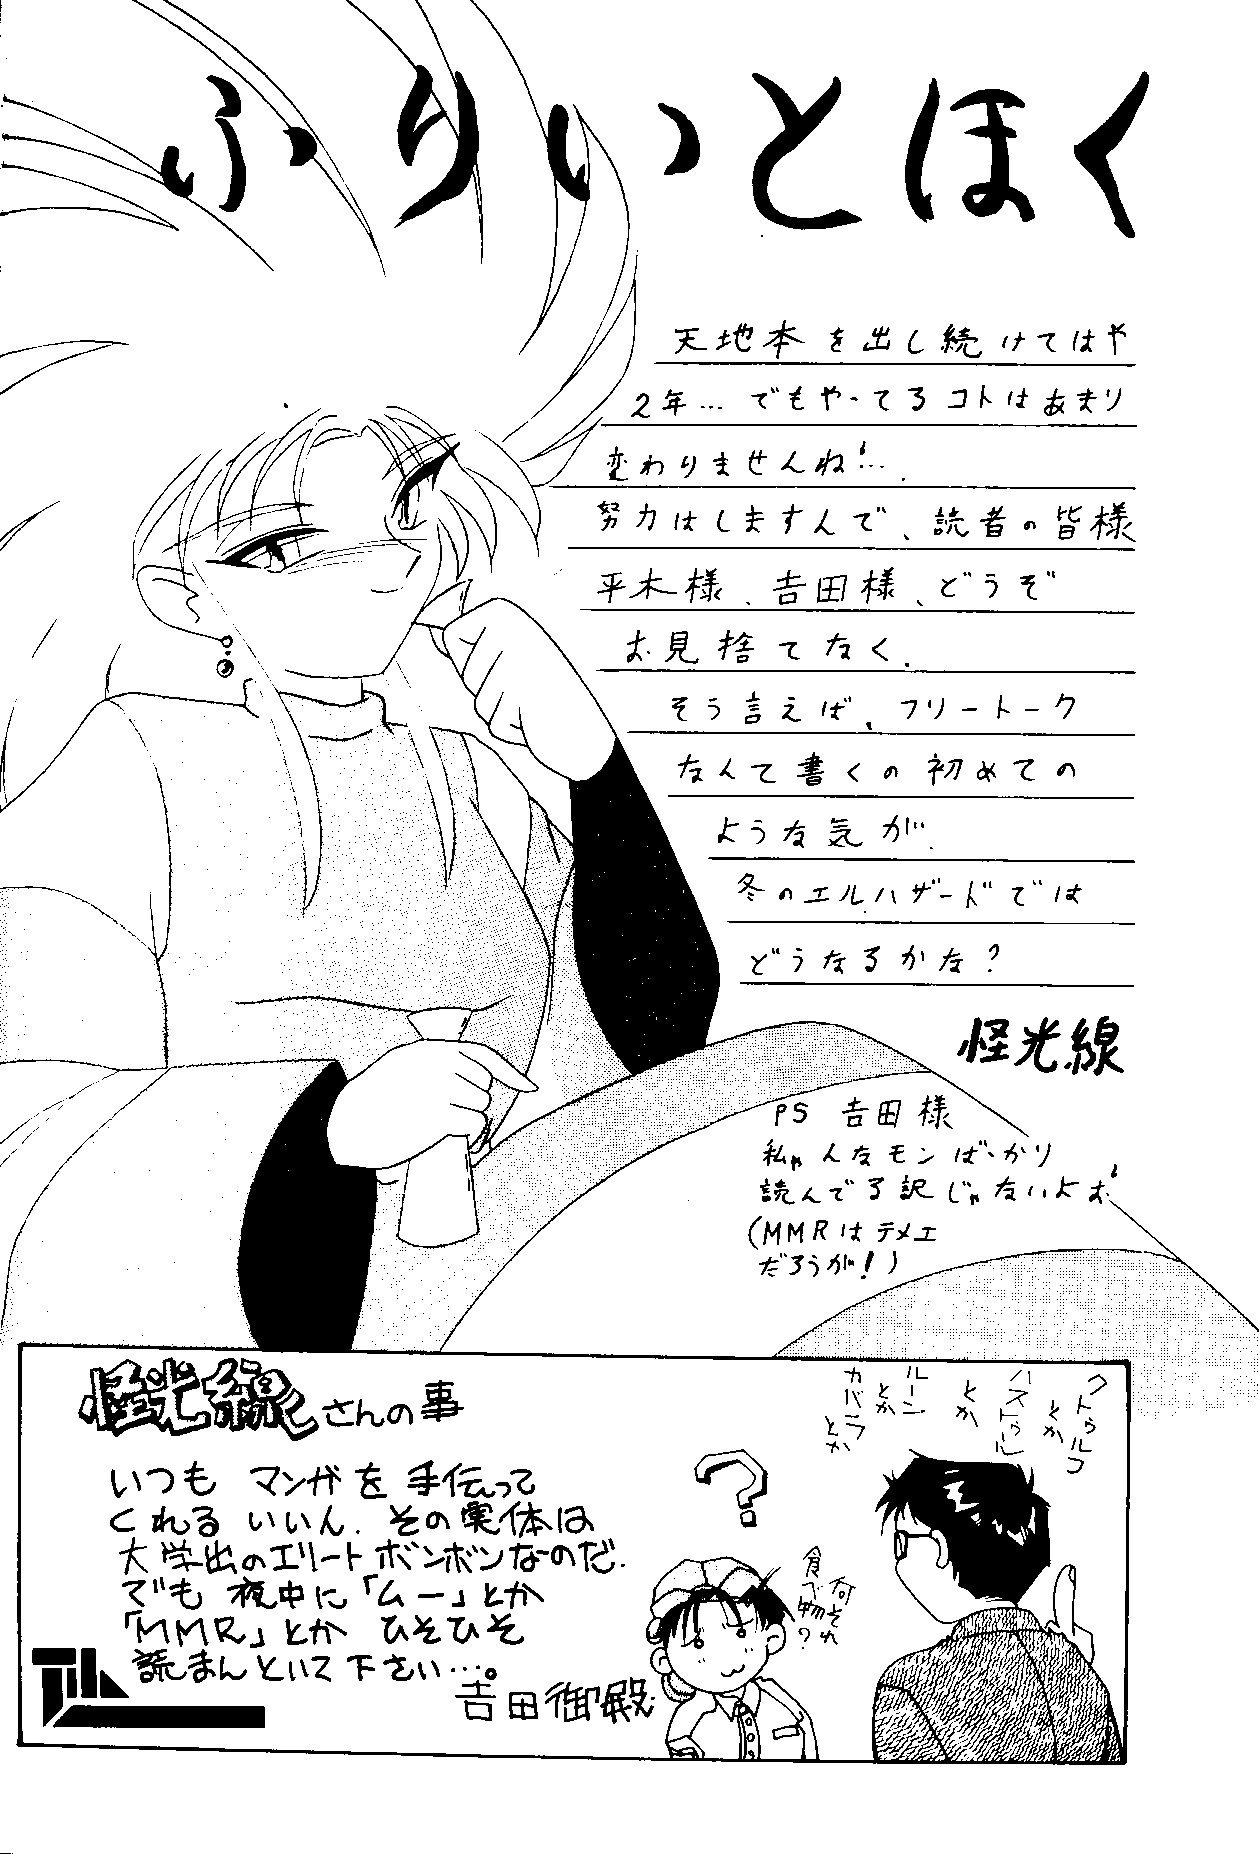 ふりいとほく
天地本を出し続けてはや
2年… でもやってるコトはあまり
変わりませんねぇ…
努力はしますんで、読者の皆様
平木様、吉田様、どうぞ
お見捨てなく.
そう言えば、フリートーク
なんて書くの初めての
ような気が.
冬のエルハザードでは
どうなるかな?
怪光線
PS 吉田様
私ゃんなモンばっかり
読んでる訳じゃないよお
(MMRはテメエ
だろうが!)
怪光線さんの事
いつも マンガを 手伝って
くれる いいん. その実体は
大学出のエリートボンボンなのだ.
でも 夜中に「ムー」とか
「MMR」とか ひそひそ
読まんといて下さい…。
吉田御殿
クトゥルフ
とか
ハストゥル
とか
ルーン
とか
カバラ
とか
?
何それ
食べ物?